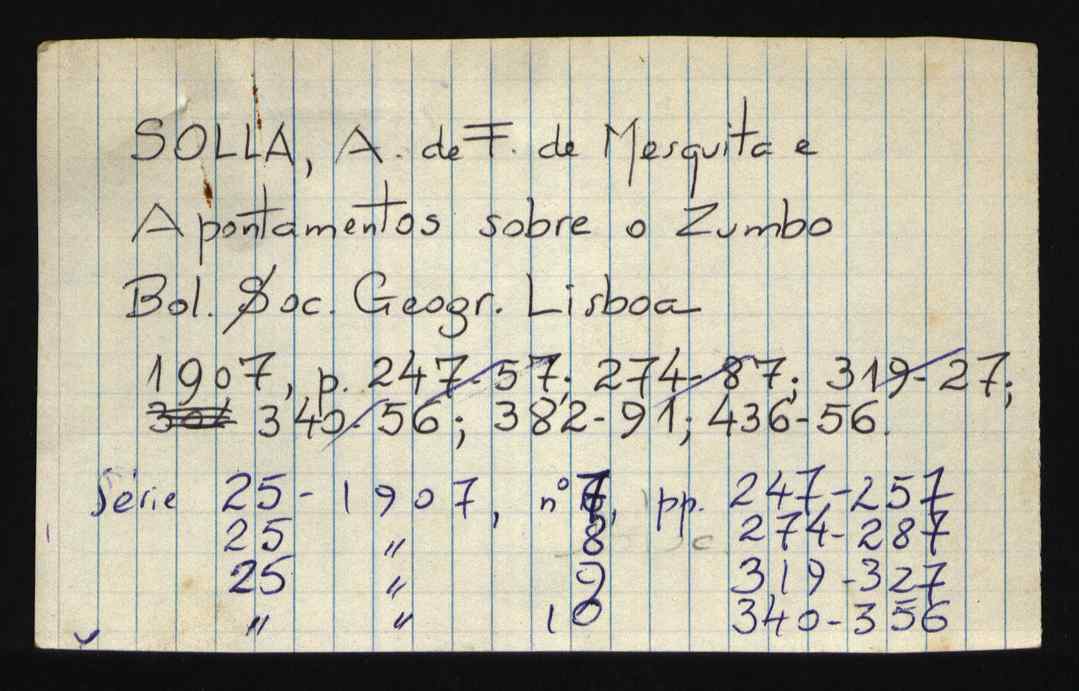 SOLLA, A. de F. de Mesquita e
Apontamentos sobre o Zumbo
Bol. Soc. Geogr. Lisboa
1907, p. 247-57; 274-87; 319-27;
340-56; 382-91; 436-56.
Série 25 - 1907, nº 7, pp. 247-257
25 " 8 274-287
25 " 9 319-327
" " 10 340-356